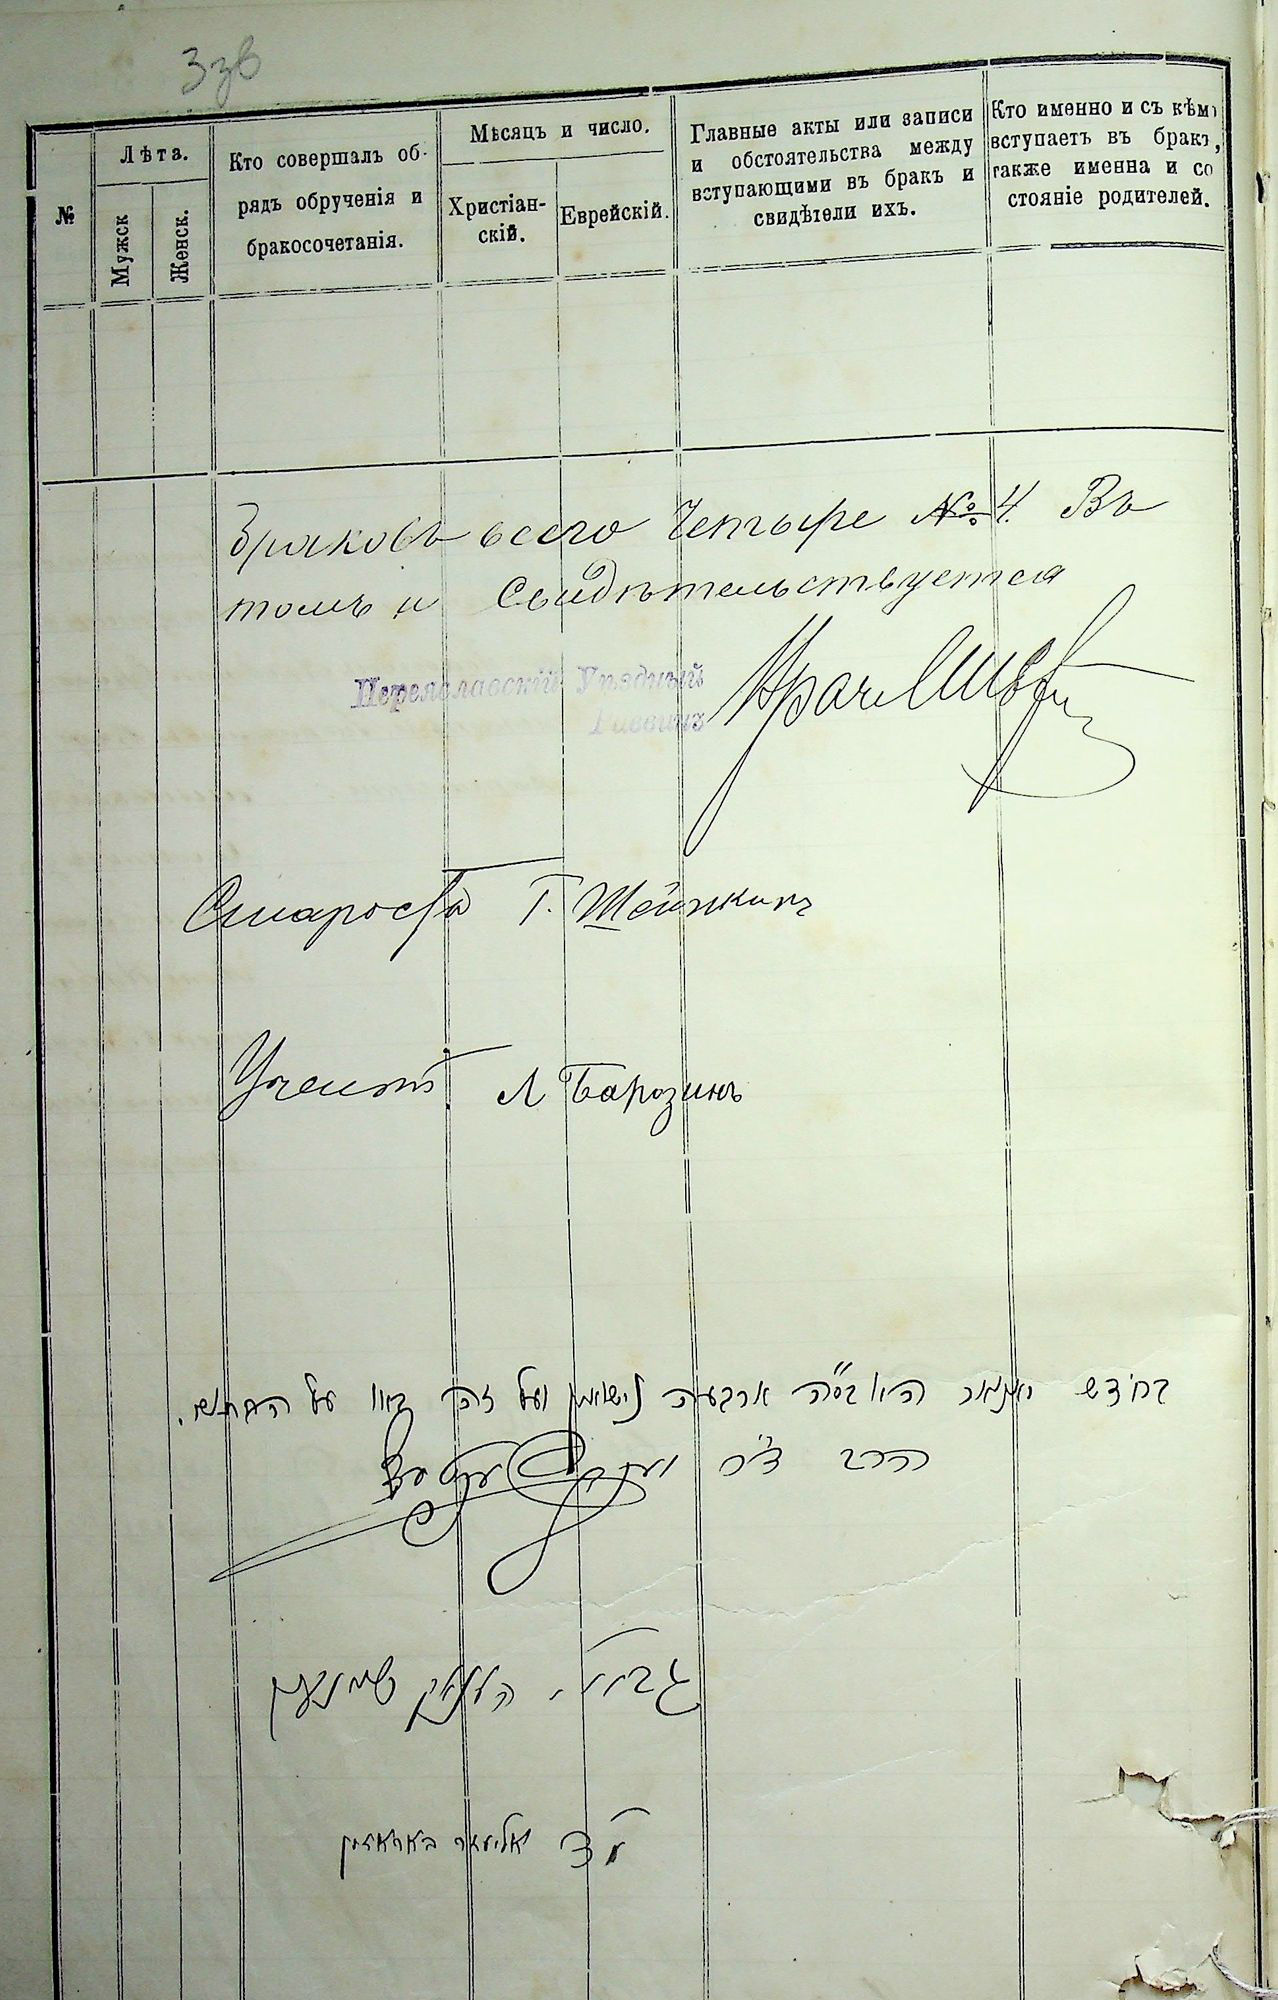 ззв
№
Лѣта.
Мужск
Женск.
Кто совершалъ об-
рядъ обрученія и
бракосочетанія.
Мѣсяцъ и число.
Христіан-
скій.
Еврейскій.
Главные акты или записи
и обстоятельства между
вступающими въ бракъ и
свидѣтели ихъ.
Кто именно и съ кѣмъ
вступаетъ въ бракъ,
также имена и со
стояніе родителей.
Браковъ всего Четыре № 4. Въ
томъ и Свидѣтельствуется
Переяславскій Уѣздный
Раввинъ
Староста Г. Шейнкинъ
Ученый Л Барозинъ
בחדש ארבעה נישואין ועל זה באו על החתום.
הרב
גבאי
אליעזר באראזין